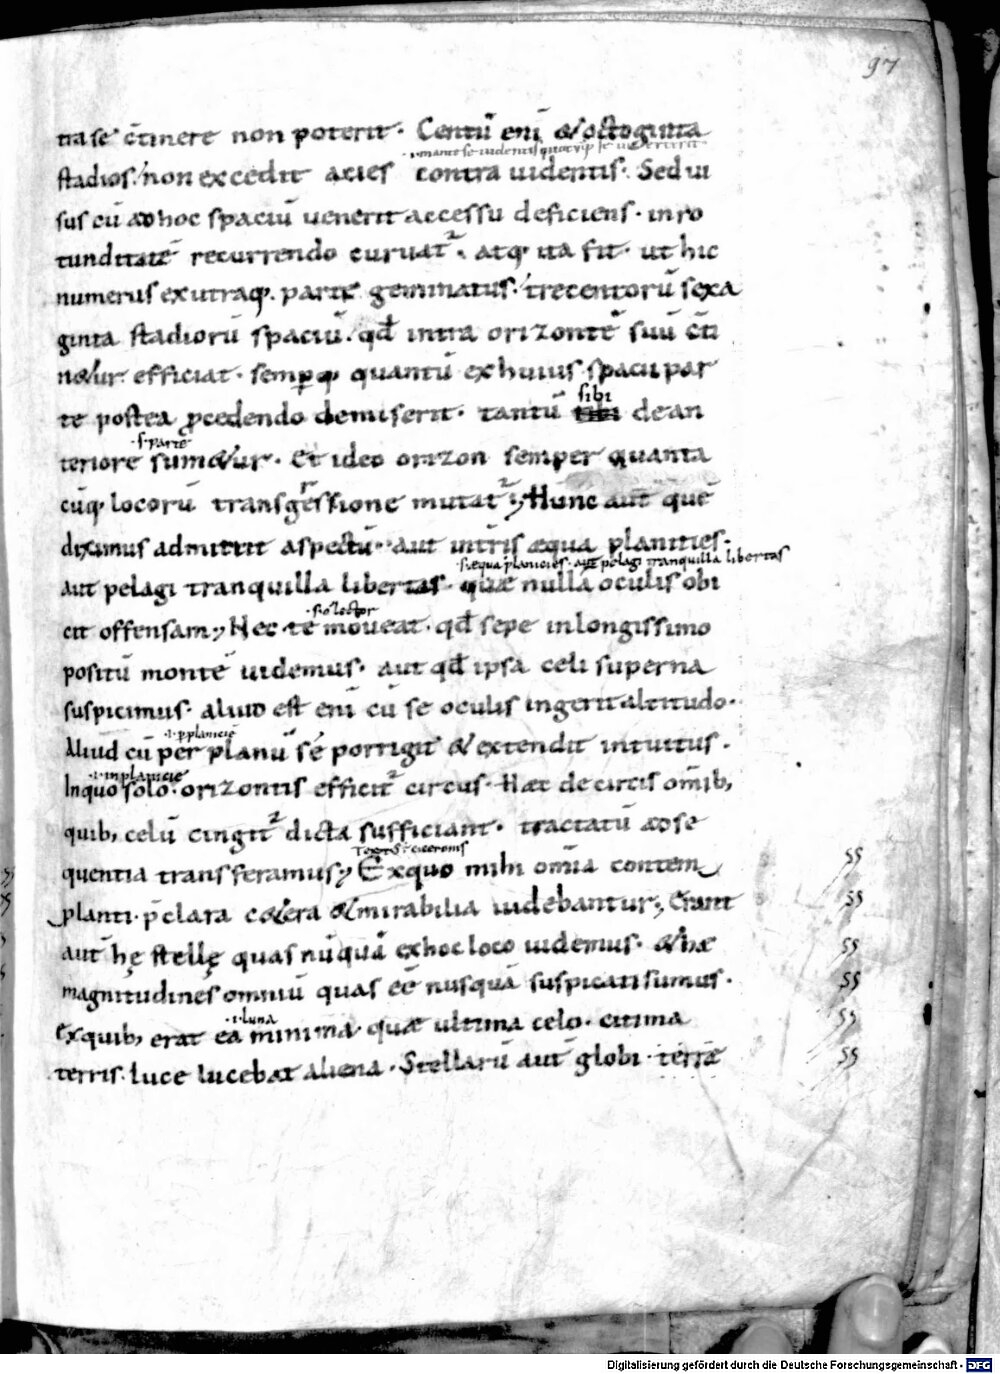 97
tra se c̄tinere non poterit · Centū eni᷆ & octoginta
stadios · non excedit acies contra uidentis · Sed ui
sus cū ad hoc spaciū uenerit accessu deficiens · in ro
tunditatē recurrendo curuat᷑ · atq; ita fit · ut hic
numerus ex utraq; parte geminatus · trecentorū sexa
ginta stadiorū spaciū · qd̄ intra orizontē suū c̄ti
n&ur · efficiat · semp̱q; quantū ex huius spacii par
te postea p̱cedendo demiserit · tantū sibi de an
·s· parte
teriore sum&ur · Et ideo orizon semper quanta
cūq; locorū transgressione mutat᷑; Hunc aut̄ quē
diximus admittit aspectū · aut intr̄is æqua planities ·
·s· æqua planicies · aut pelagi tranquilla libertas
aut pelagi tranquilla libertas · quæ nulla oculis obi
cit offensam; Nec · te moueat · qd̄ sepe in longissimo
·s· o lector
positū montē uidemus · aut qd̄ ipsa celi superna
suspicimus · aliud est eni᷆ cū se oculis ingerit altitudo ·
·i· p̱ planiciē
Aliud cū per planū sē porrigit & extendit intuitus ·
·i· in planicie
In quo solo · orizontis efficit᷑ circus · Hæc de circis om̄ib;
quib; celū cingit᷑ dicta sufficiant · tractatū ad se
quentia transferamus; Ex quo mihi om̄ia contem
planti · p̄clara c&era & mirabilia uidebantur; Erant
aut̄ hę stellę quas nūquā ex hoc loco uidemus · & hæ
magnitudines omniū quas eē nusquā suspicati sumus ·
·i· luna
ex quib; erat ea minima · quæ ultima celo · citima
terris · luce lucebat aliena · Stellarū aut̄ globi · terræ
Digitalisierung gefördert durch die Deutsche Forschungsgemeinschaft - DFG